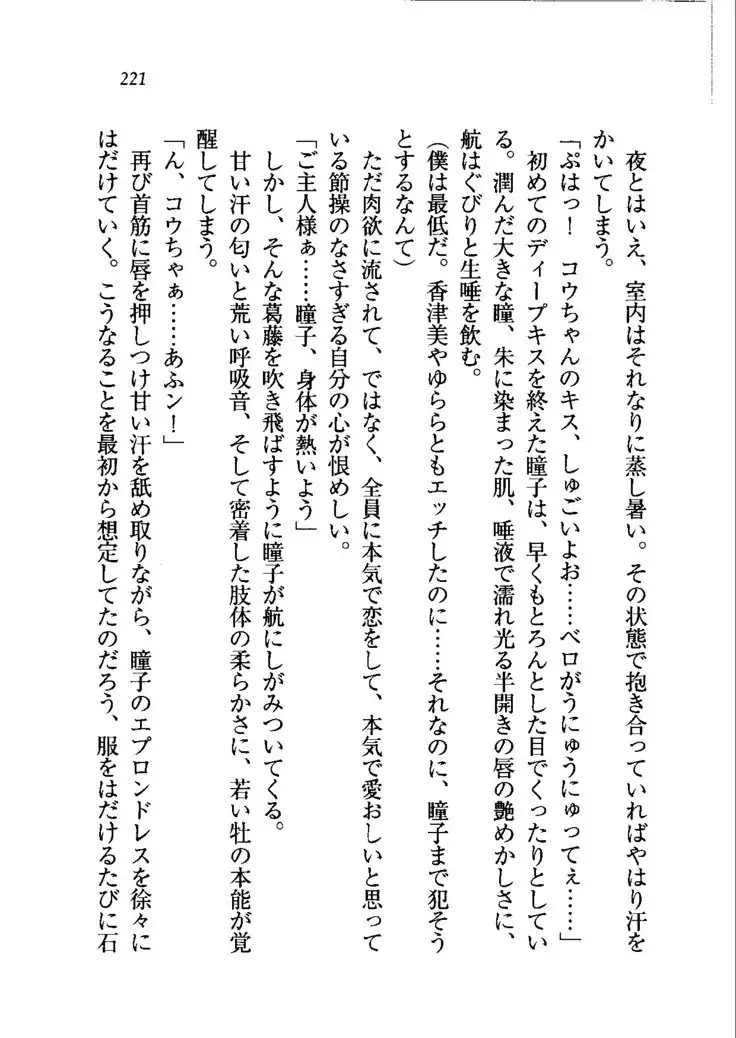 221
夜とはいえ、室内はそれなりに蒸し暑い。その状態で抱き合っていればやはり汗を
かいてしまう。
「ぷはっ！　コウちゃんのキス、しゅごいよお……ベロがうにゅうにゅってぇ……」
初めてのディープキスを終えた瞳子は、早くもとろんとした目でくったりとしてい
る。潤んだ大きな瞳、朱に染まった肌、唾液で濡れ光る半開きの唇の艶めかしさに、
航はぐびりと生唾を飲む。
（僕は最低だ。香津美やゆららともエッチしたのに……それなのに、瞳子まで犯そう
とするなんて）
ただ肉欲に流されて、ではなく、全員に本気で恋をして、本気で愛おしいと思って
いる節操のなさすぎる自分の心が恨めしい。
「ご主人様ぁ……瞳子、身体が熱いよう」
しかし、そんな葛藤を吹き飛ばすように瞳子が航にしがみついてくる。
甘い汗の匂いと荒い呼吸音、そして密着した肢体の柔らかさに、若い牡の本能が覚
醒してしまう。
「ん、コウちゃぁ……あふン！」
再び首筋に唇を押しつけ甘い汗を舐め取りながら、瞳子のエプロンドレスを徐々に
はだけていく。こうなることを最初から想定してたのだろう、服をはだけるたびに石